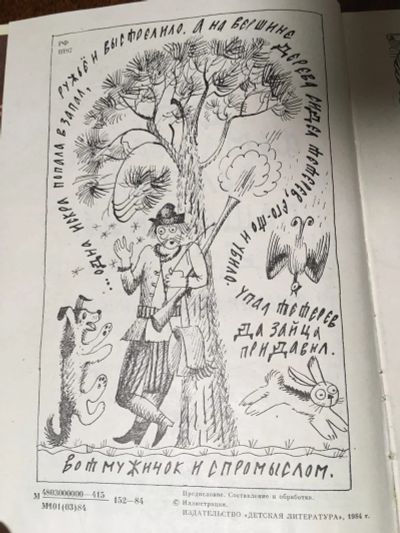 РФ
П192
...ОДНА ИСКРА ПОПАЛА В ЗАПАЛ, РУЖЬЁ И ВЫСТРЕЛИЛО. А НА ВЕРШИНЕ ДЕРЕВА СИДЕЛ ТЕТЕРЕВ, ЕГО-ТО И УБИЛО.
УПАЛ ТЕТЕРЕВ
ДА ЗАЙЦА
ПРИДАВИЛ.
ВОТ МУЖИЧОК И С ПРОМЫСЛОМ.
М 4803000000—415
М101(03)84
152—84
Предисловие. Составление и обработка.
© Иллюстрации.
ИЗДАТЕЛЬСТВО «ДЕТСКАЯ ЛИТЕРАТУРА», 1984 г.